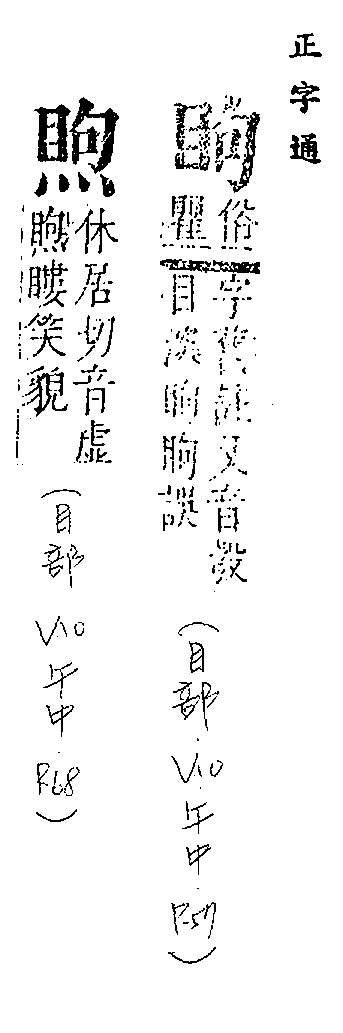 正字通
眗
俗字舊註又音
瞿目深
誤
(目部.V10.午中.P.57)
休居切音虛
瞜笑貌
(目部 V10 午中.P.68)